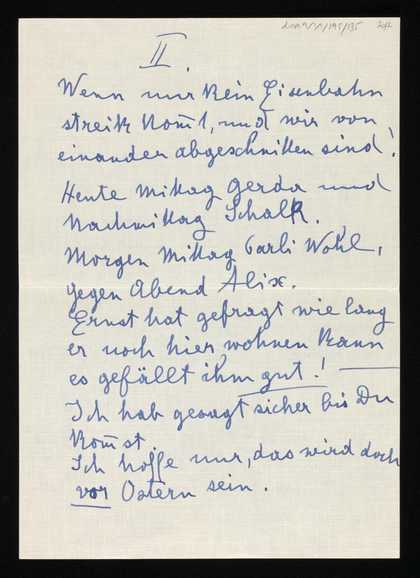 II.
Wenn nur kein Eisenbahn
streik kom̄t, und wir von
einander abgeschnitten sind!
Heute Mittag Gerda und
Nachmittag Schalk.
Morgen Mittag Carli Wohl,
gegen Abend Alix.
Ernst hat gefragt wie lang
er noch hier wohnen kann
es gefällt ihm gut!
Ich hab gesagt sicher bis Du
kom̄st.
Ich hoffe nur, das wird doch
vor Ostern sein.